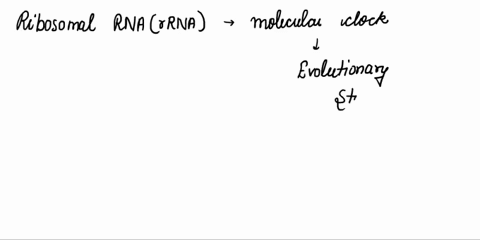 Ribosomal RNA (rRNA) → molecular clock
↓
Evolutionary
St